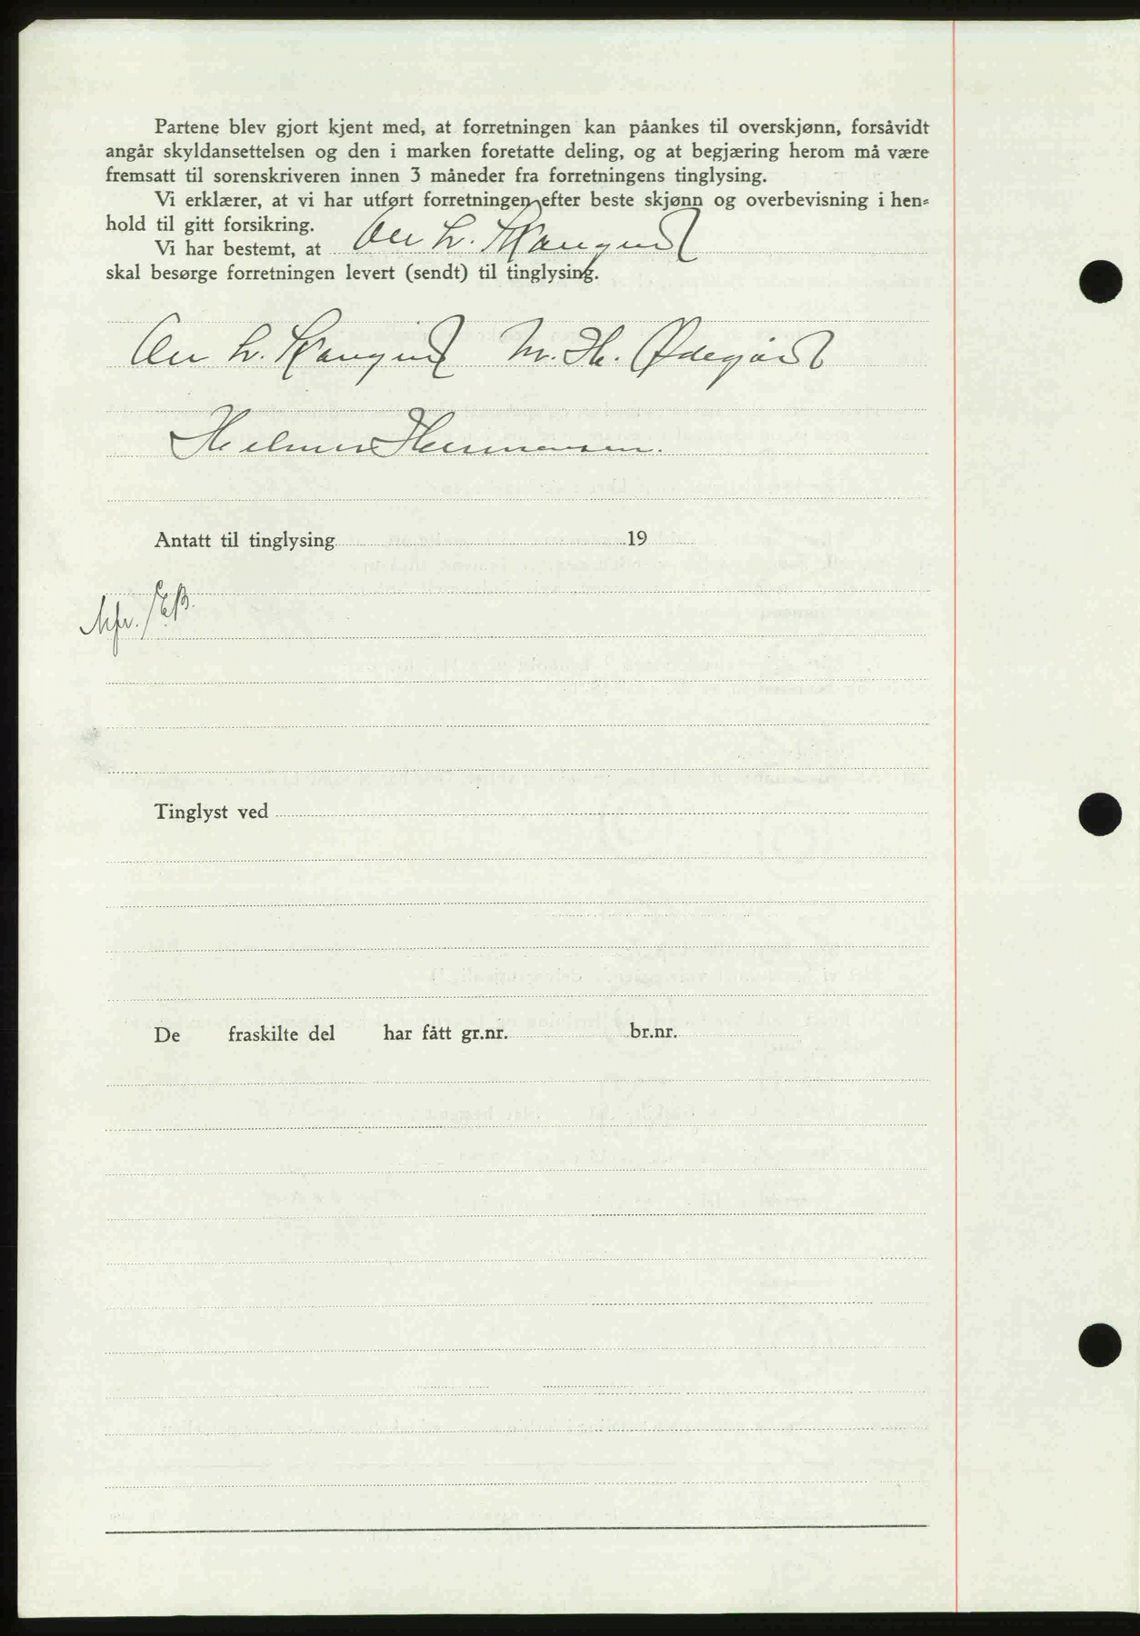 Partene blev gjort kjent med, at forretningen kan påankes til overskjønn, forsåvidt
angår skyldansettelsen og den i marken foretatte deling, og at begjæring herom må være
fremsatt til sorenskriveren innen 3 måneder fra forretningens tinglysing.
Vi erklærer, at vi har utført forretningen efter beste skjønn og overbevisning i hen-
hold til gitt forsikring.
Vi har bestemt, at L.
skal besørge forretningen levert (sendt) til tinglysing.
L. M. Th. Ødegård
Helmer Hermansen.
Antatt til tinglysing 19
/EB.
Tinglyst ved
De fraskilte del har fått gr.nr. br.nr.